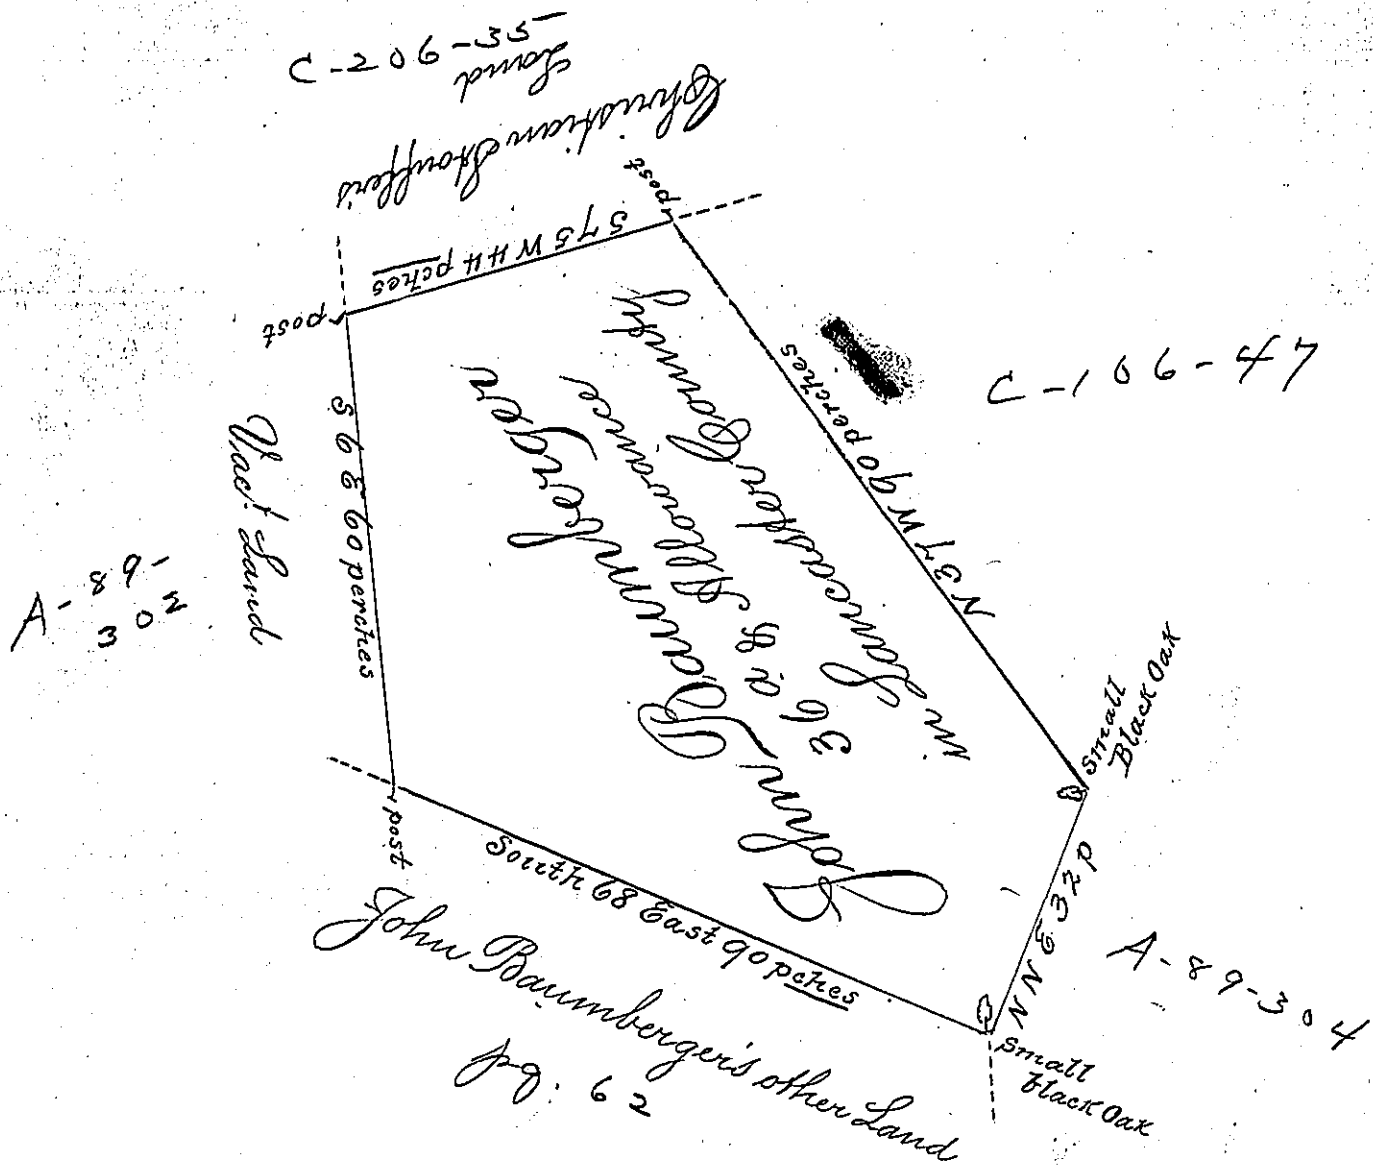 C-206-35
Christian Stouffer's
Land
post
S 75 W 44 pches
post
C-106-47
N 37 W 90 perches
S 6 E 60 perches
Vact. Land
A-89-
302
John Baumberger
36 a & Allowance
in Lancaster County
small
Black Oak
N N E 32 P
A-89-304
post
South 68 East 90 pches
small
black Oak
John Baumberger's other Land
pg: 62